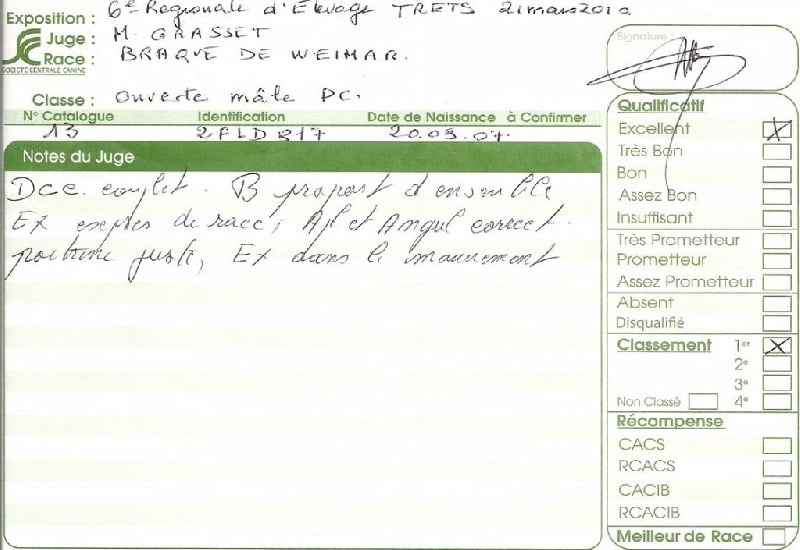 Exposition : 6e Regionale d'Elevage TRETS 21 mars 2010
Juge : M. GRASSET
Race : BRAQUE DE WEIMAR.
SOCIETE CENTRALE CANINE
Classe : Ouverte mâle PC.
N° Catalogue Identification Date de Naissance à Confirmer
13 2FLD817 20.03.07.
Notes du Juge
Dce complet. B proport d'ensemble
Ex expres de race, Apl et Angul correct.
poitrine juste, Ex dans le mouvement
Signature :
Qualificatif
Excellent X
Très Bon
Bon
Assez Bon
Insuffisant
Très Prometteur
Prometteur
Assez Prometteur
Absent
Disqualifié
Classement 1er X
2e
3e
Non Classé 4e
Récompense
CACS
RCACS
CACIB
RCACIB
Meilleur de Race